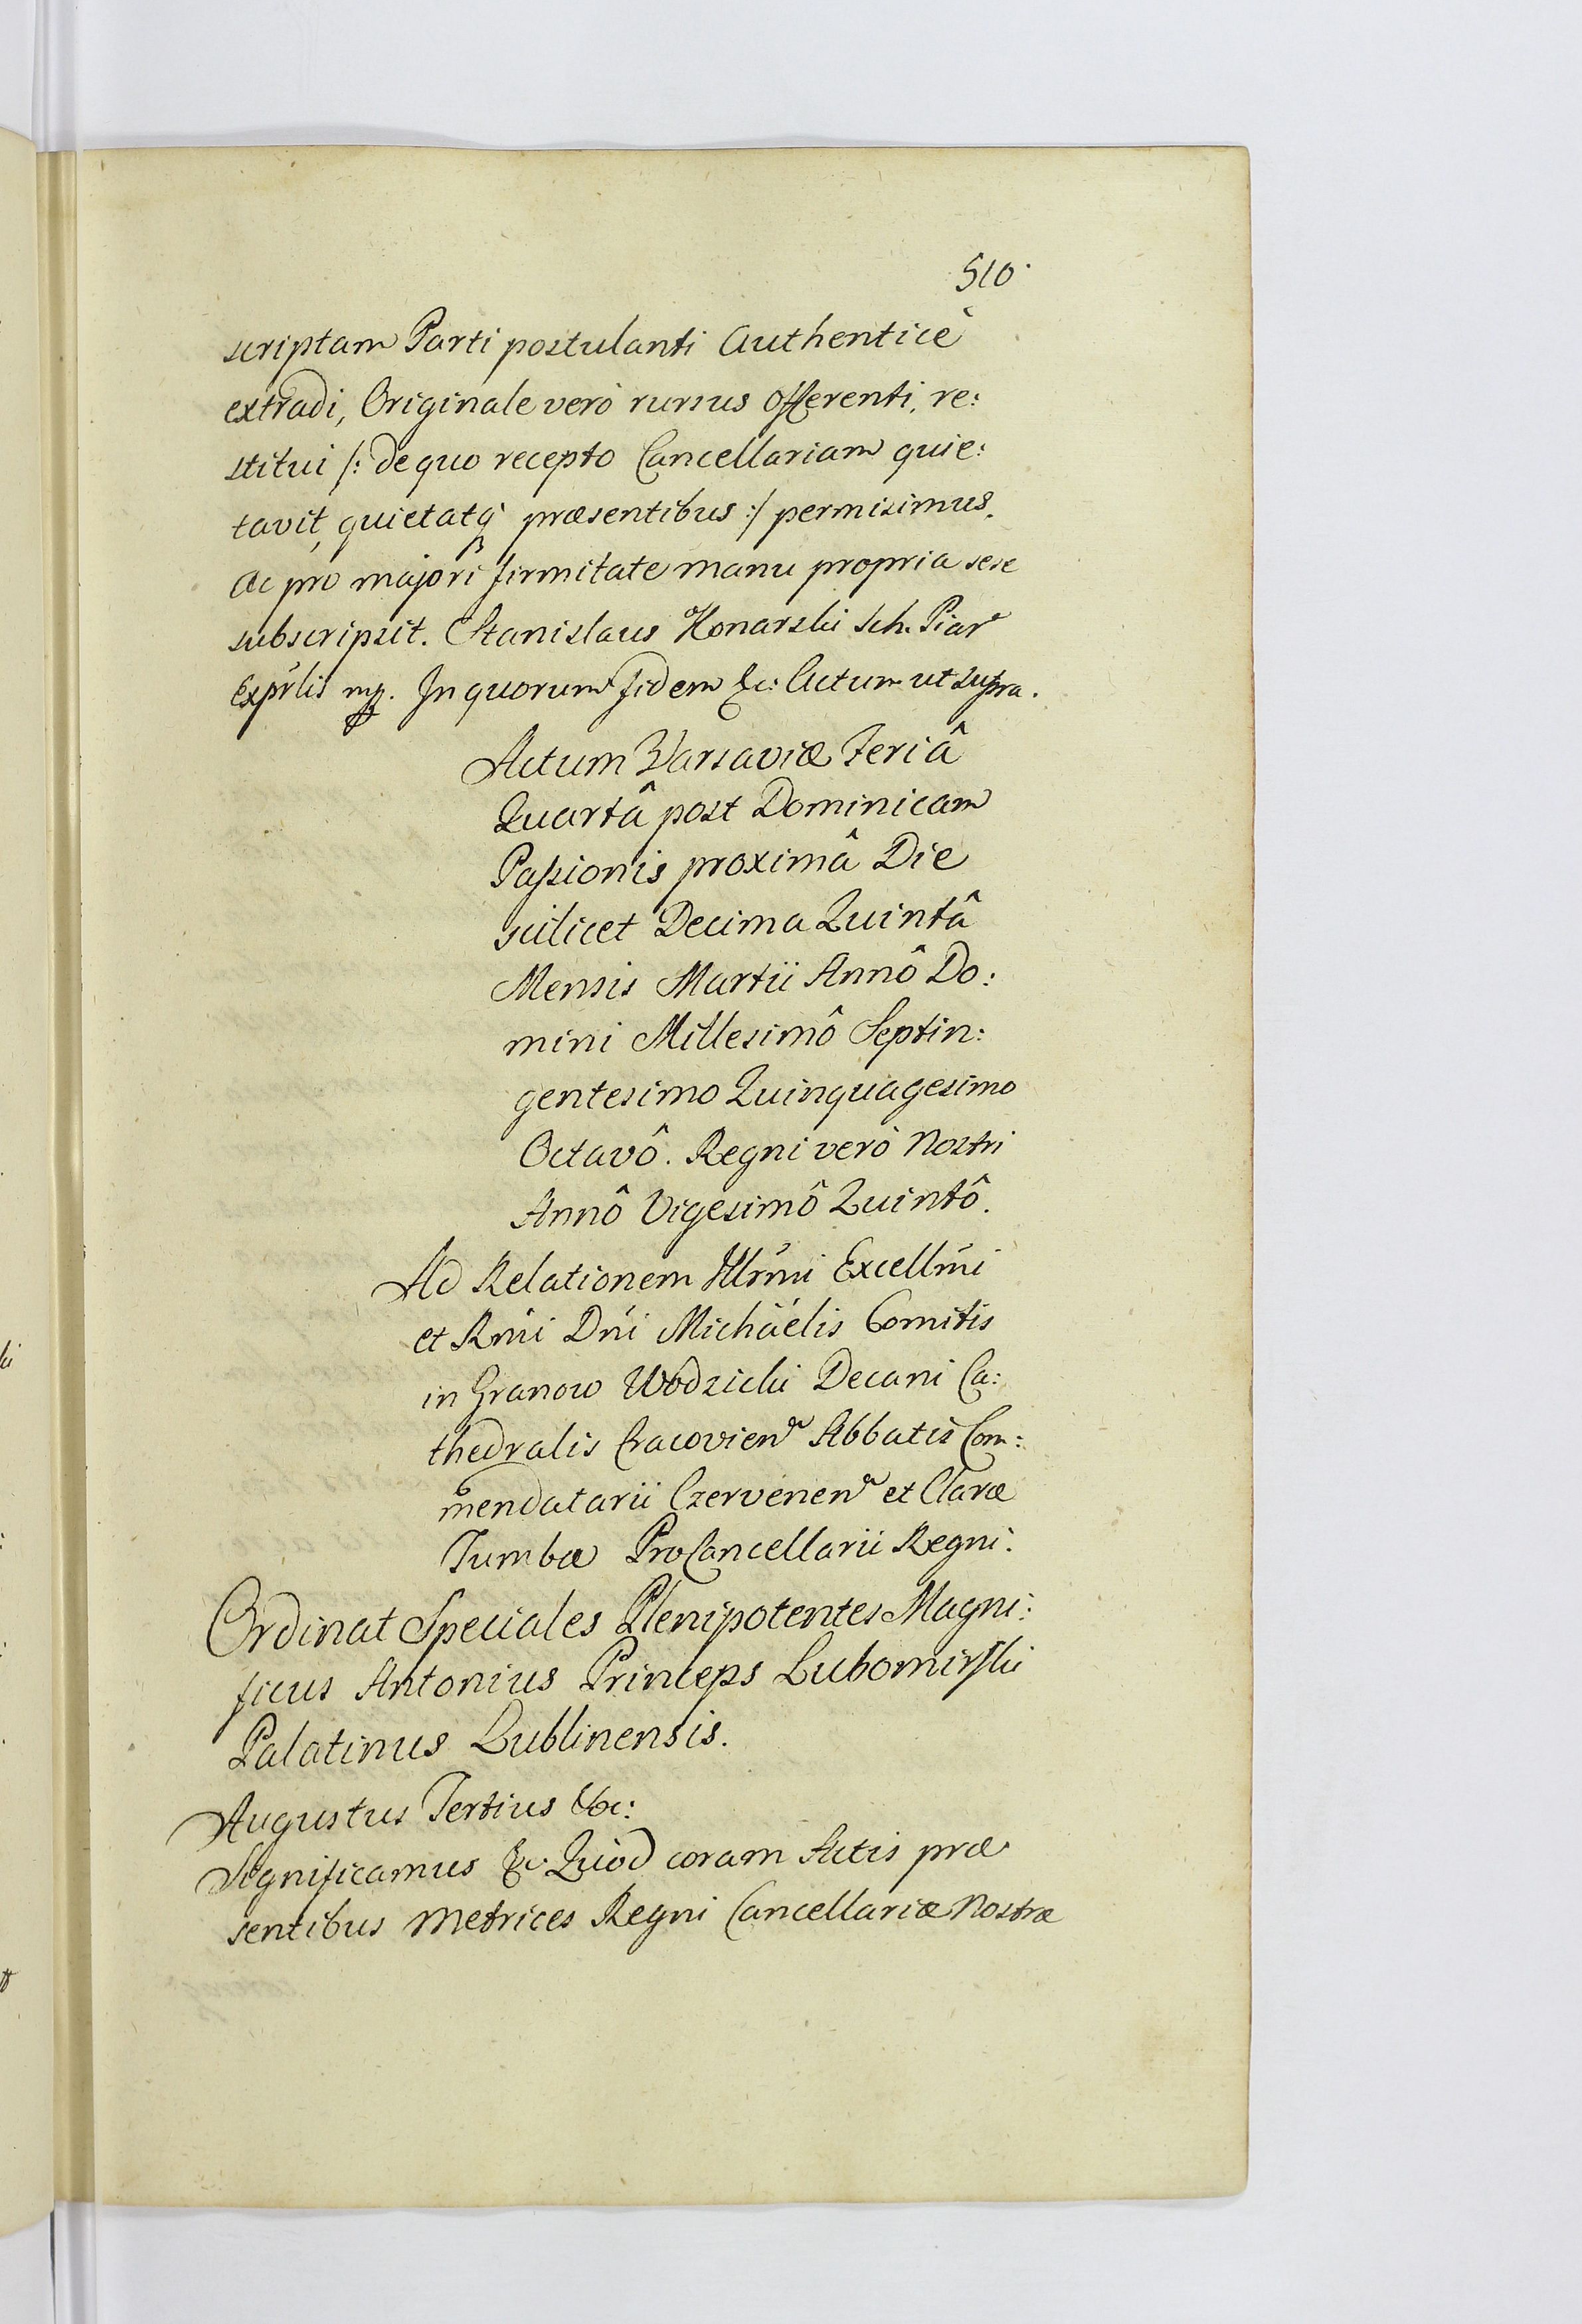 510.
scriptam Parti postulanti Authenticè
extradi, Originale verò rursus Offerenti, re:
stitui /: de quo recepto Cancellariam quie:
tavit, quietatq̃ præsentibus :/ permisimus.
Ac pro majori firmitate manu propria sese
subscripsit. Stanislaus Konarski Sch. Piar
mp. In quorum fidem &c: Actum ut supra.
Actum Varsaviæ Feriâ
Quartâ post Dominicam
Passionis proximâ Die
scilicet Decima Quintâ
Mensis Martii Annô Do:
mini Millesimô Septin:
gentesimo Quinquagesimo
Octavô. Regni verò Nostri
Annô Vigesimô Quintô.
Ad Relationem Illrm̃i Excellm̃i
et Rm̃i Dn̄i Michäelis Comitis
in Granow Wodzicki Decani Ca:
thedralis Cracovien Abbatis Com:
mendatarii Czervenen et Claræ
Tumbæ ProCancellarii Regni.
Ordinat Speciales Plenipotentes Magni:
ficus Antonius Princeps Lubomirski
Palatinus Lublinensis.
Augustus Tertius &c:
Significamus &c. Quòd coram Actis præ
sentibus Metrices Regni Cancellariæ Nostræ